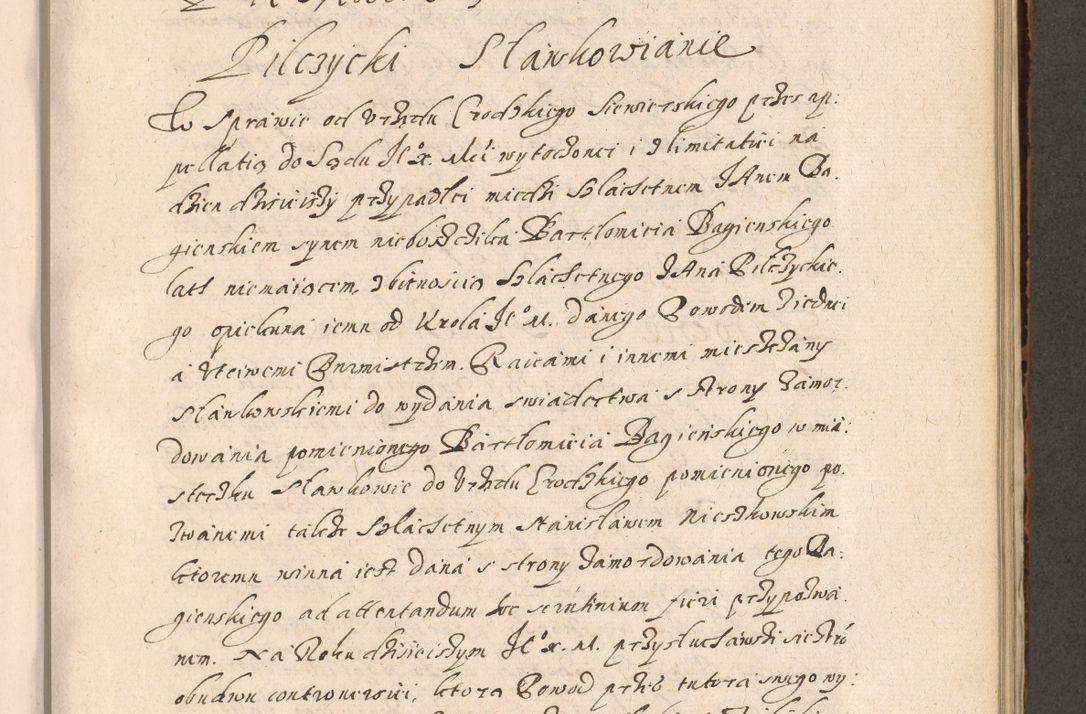 Pilczycki Slawkowianie
W sprawie od Vrzędu Grodzkiego Siewierskiego przez ap:
pellatią do Sądu JE° X. Mci wytoczonei i z limitatiei na
dzien dzisieiszy przypadłei miedzi Szlachetnem JAnem Ba:
gienskiem synem nieboszczika Bartłomieia Bagienskiego
latt niemaiącem, z bitnoscią Szlachetnego JAna Pilczyckie:
go opiekuna iemu od Krola JE° M. danego Powodem z iednei
a Vcciwemi Burmistrzem. Raicami i innemi miesczany
Slawkowskiemi do wydania swiadectwa s strony zamor:
dowania pomienionego Bartłomieia Bagienskiego w mia:
steczku Slawkowie do Vrzędu Grodzkiego pomienionego po
zwanemi także Szlachetnym Stanisławem Nieszkowskim
ktoremu winna iest dana s strony zamordowania tego Ba:
gienskiego ad attentandum hoc scrutinium fieri przypozwa:
nem. Na Roku dzisieiszym JE° X. M. przysłuchawszi się stron
obudwu controuersiei, ktora Powod przez tutora swego wy: